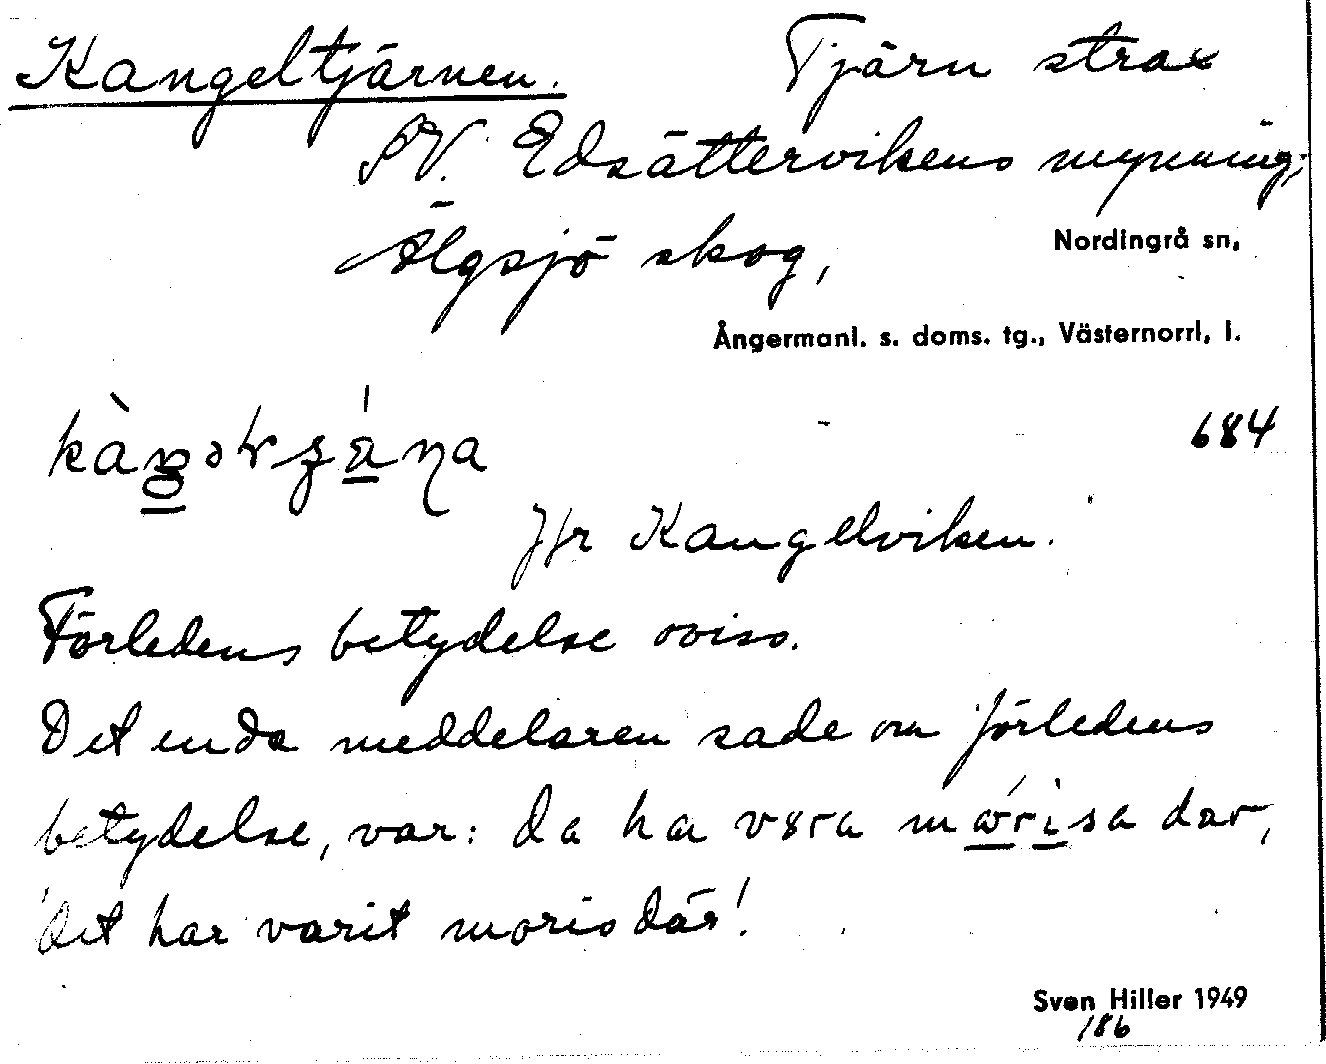 Kangeltjärnen. Tjärn strax
SV. Edsättervikens mynning,
Älgsjö skog, Nordingrå sn,
Ångermanl. s. doms. tg., Västernorrl. l.
684
Jfr Kangelviken.
Förledens betydelse oviss.
Det enda meddelaren sade om förledens
betydelse, var: da ha vara mórisa dar,
det har varit moris där!
Sven Hiller 1949
186